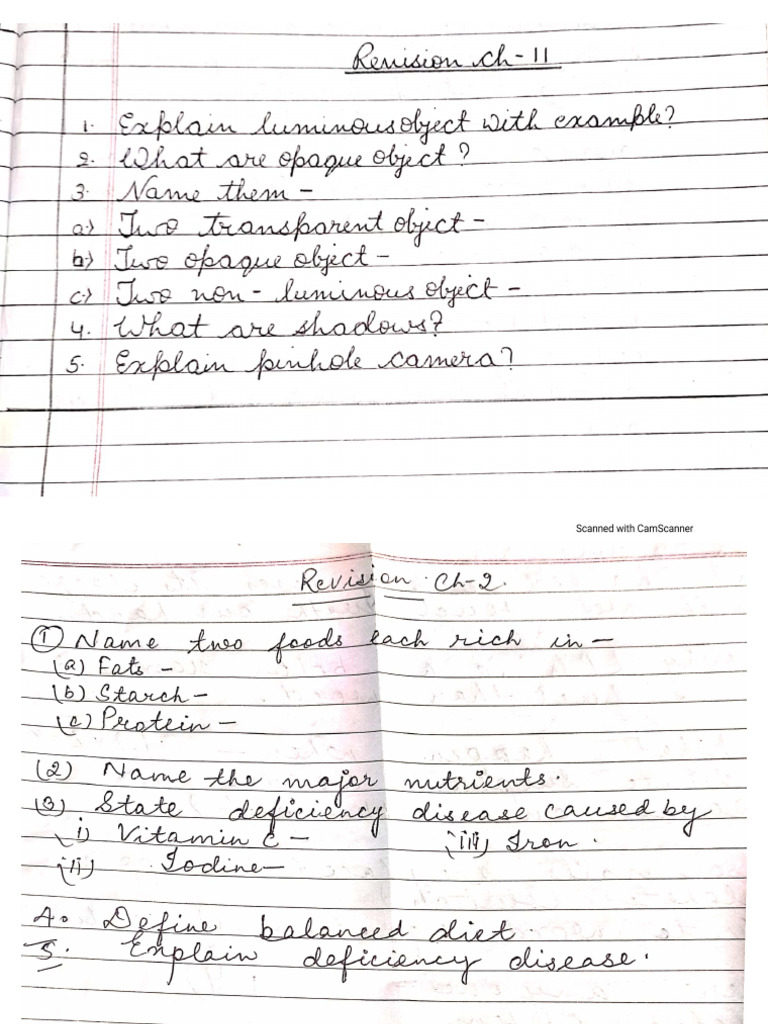 Revision Ch-11
1. Explain luminous object with example?
2. What are opaque object?
3. Name them -
a.) Two transparent object -
b.) Two opaque object -
c.) Two non-luminous object -
4. What are shadows?
5. Explain pinhole camera?
Scanned with CamScanner
Revision Ch-2.
① Name two foods each rich in -
(a) Fats -
(b) Starch -
(c) Protein -
(2) Name the major nutrients.
(3) State deficiency disease caused by
(i) Vitamin C - (iii) Iron.
(ii) Iodine -
4. Define balanced diet.
5. Explain deficiency disease.